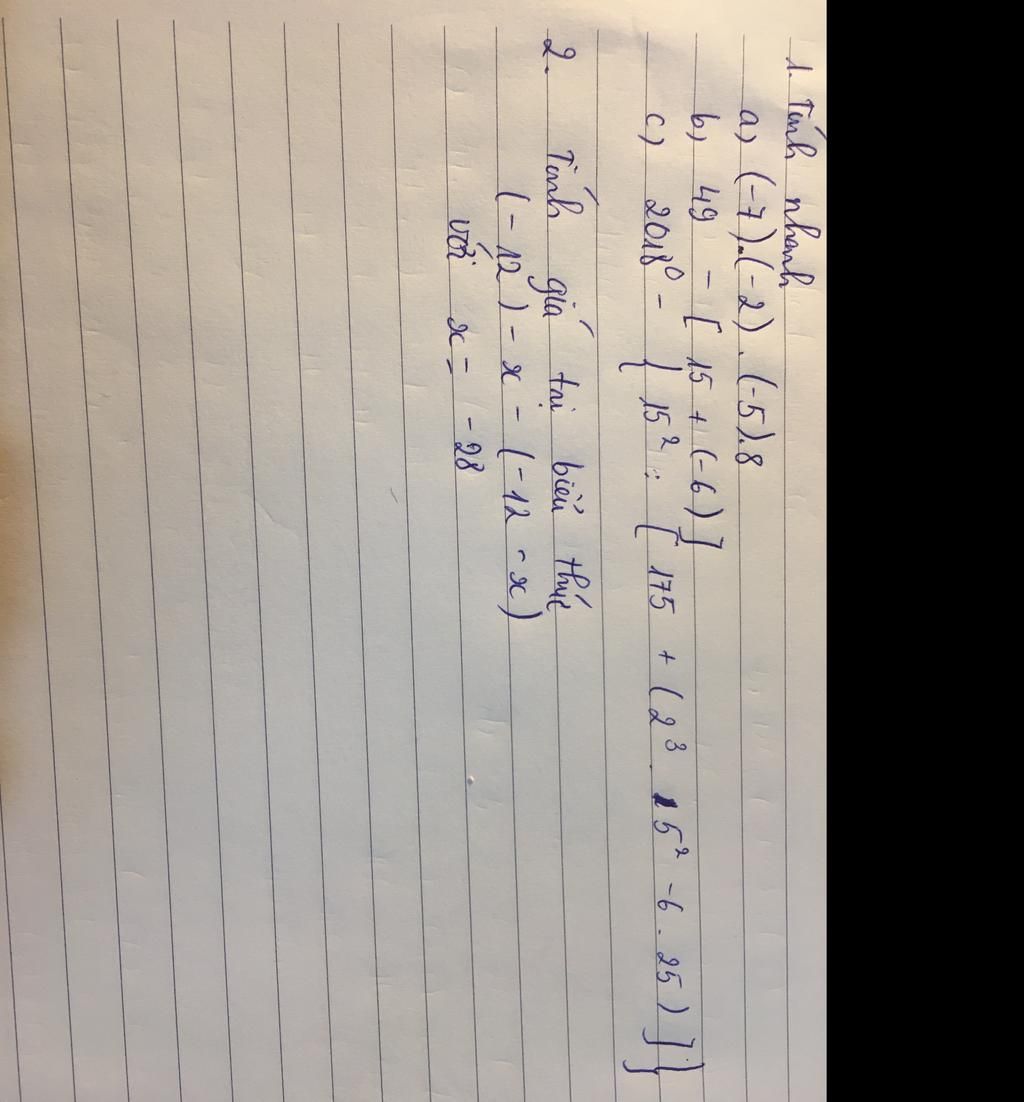 1. Tính nhanh
a) (-7).(-2).(-5).8
b) 49 - [15 + (-6)]
c) 2018⁰ - {15² : [175 + (2³ . 5² - 6 . 25)]}
2. Tính giá trị biểu thức
(-12) - x - (-12 - x)
với x = -28